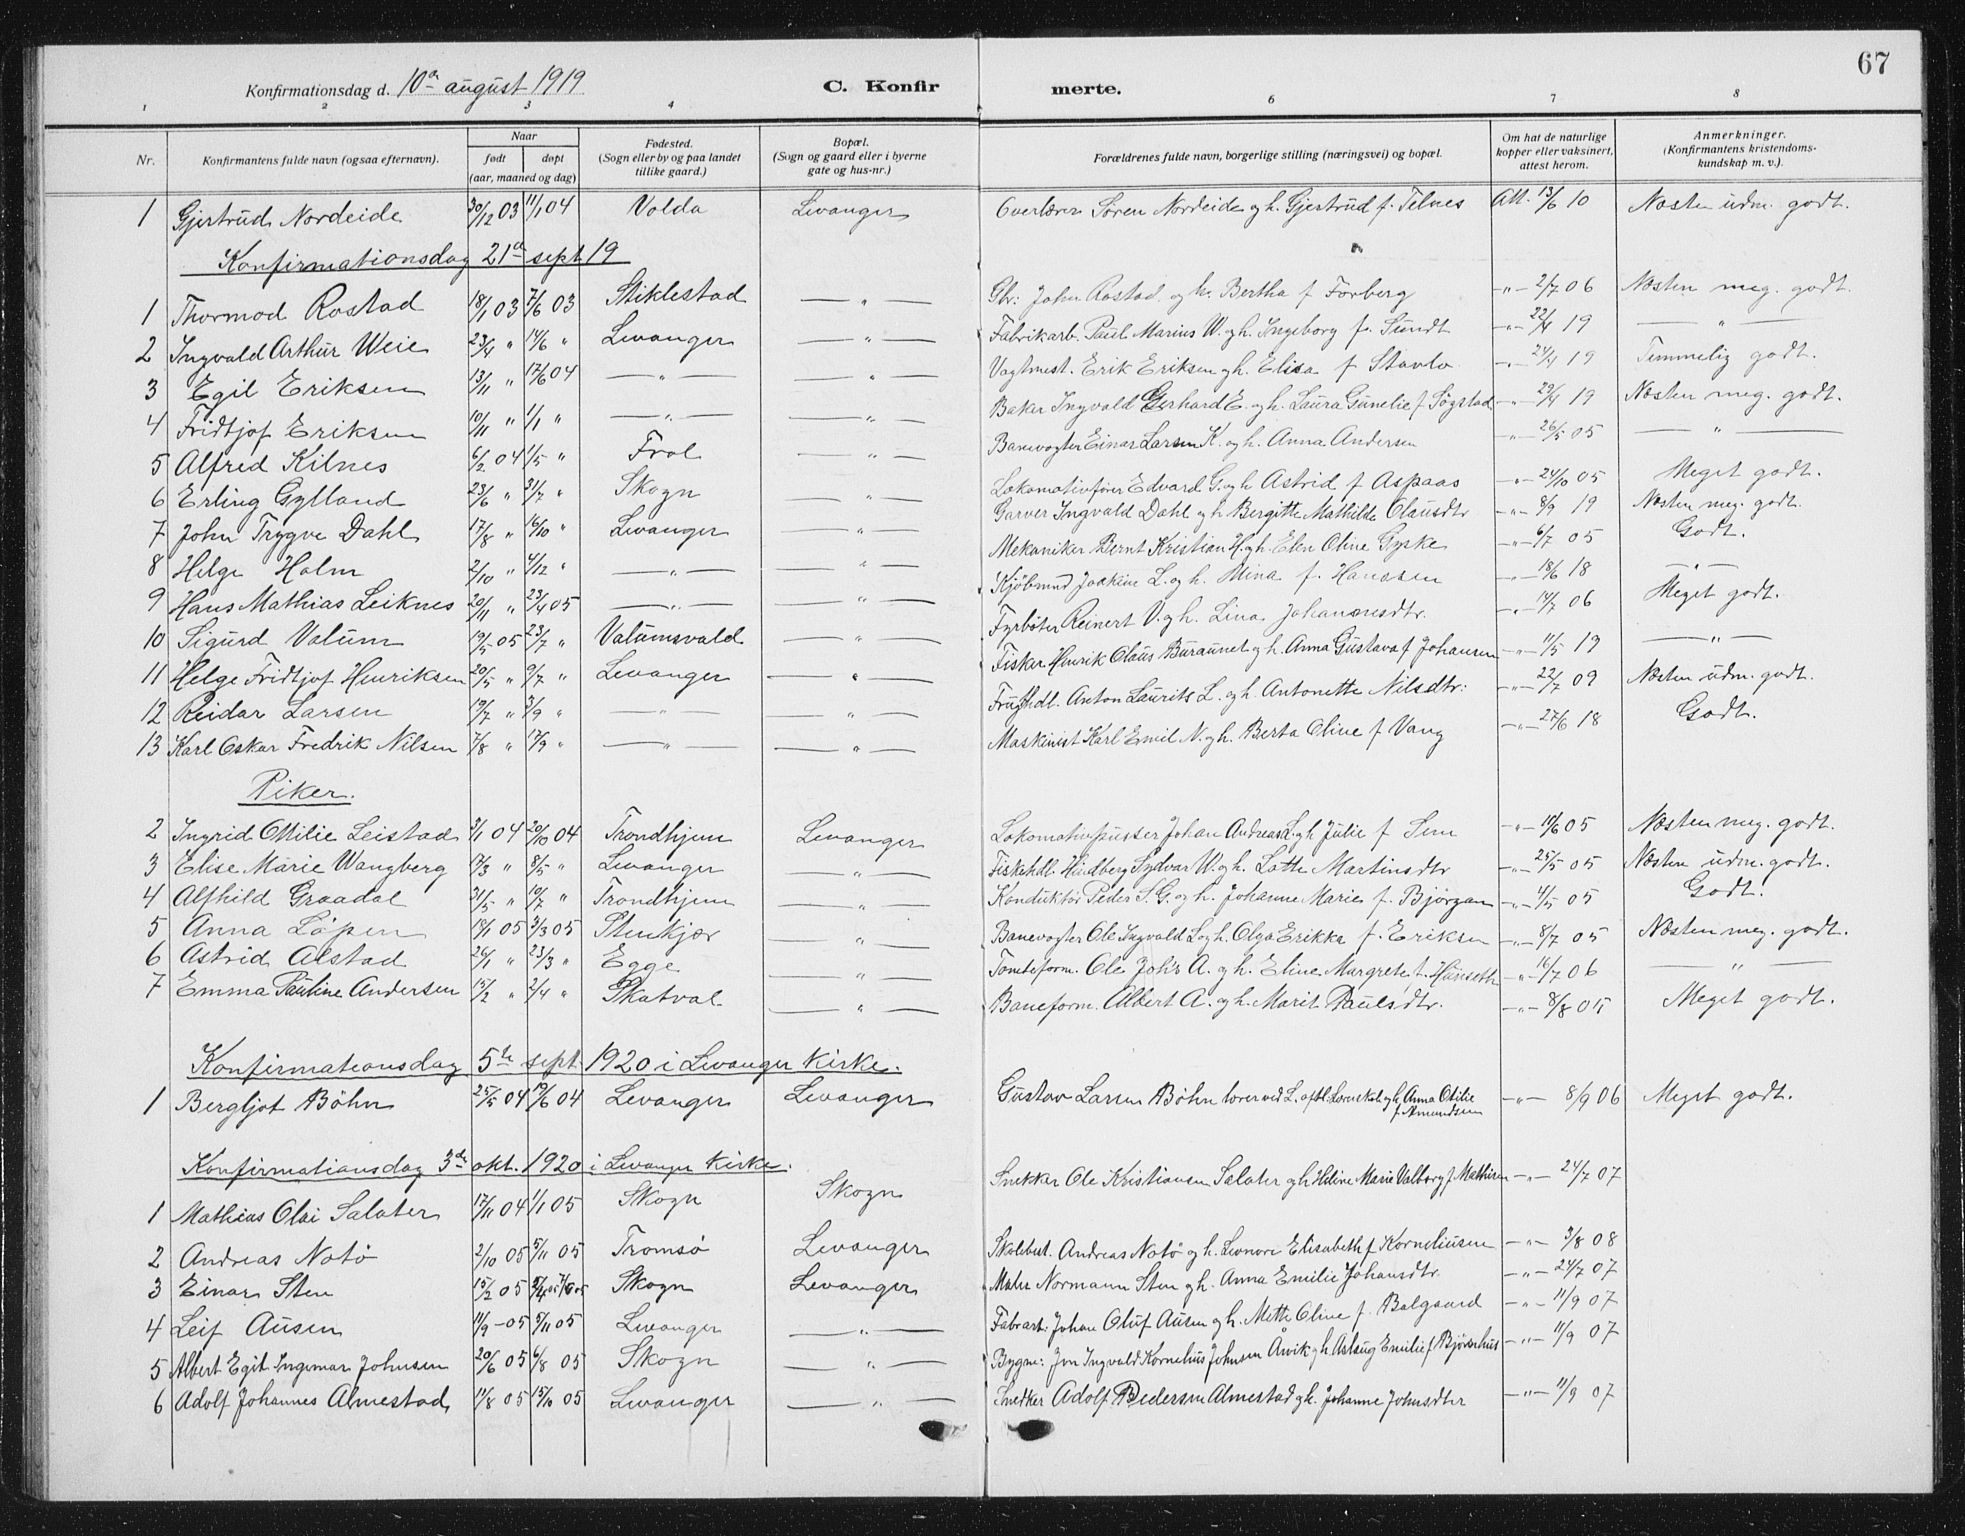 67
Konfirmationsdag d. 10de august 1919 C. Konfirmerte.
1 2 3 4 6 7 8
Nr. Konfirmantens fulde navn (ogsaa efternavn). Naar født døpt (aar, maaned og dag) Fødested. (Sogn eller by og paa landet tillike gaard.) Bopæl. (Sogn og gaard eller i byerne gate og hus-nr.) Forældrenes fulde navn, borgerlige stilling (næringsvei) og bopæl. Om hat de naturlige kopper eller vaksinert, attest herom. Anmerkninger. (Konfirmantens kristendomskundskap m. v.).
1 Gjertrud Nordeide 30/12 03 11/1 04 Volda Levanger Overlærer Søren Nordeide og h. Gjertrud f. Telnes Att. 13/6 10 Næsten udm. godt.
Konfirmationsdag 21de sept 19
1 Thormod Rostad 18/1 03 7/6 03 Stiklestad — " — Gbr: John Rostad og h. Bertha f Forberg — " — 2/7 06 Næsten meg. godt.
2 Ingvald Arthur Weie 23/4 " 14/6 " Levanger — " — Fabrikarb. Paul Marius W. og h. Ingeborg f. Sundt — " — 22/4 19 — " —
3 Egil Eriksen 13/11 " 17/6 04 — " — — " — Vagtmest. Erik Eriksen og h. Elisa f Stavlo — " — 24/4 19 Temmelig godt.
4 Fridtjof Eriksen 10/11 " 1/1 " — " — — " — Baker Ingvald Gerhard E. og h. Laura Gunelie f Søgstad — " — 29/4 19 Næsten meg. godt.
5 Alfred Kilnes 6/2 04 1/5 " Frol — " — Banevogter Einar Larsen K. og h. Anna Andersen — " — 26/5 05 — " —
6 Erling Gylland 23/6 " 31/7 " Skogn — " — Lokomotivfører Edvard G. og h. Astrid f Aspaas — " — 24/10 05 Meget godt.
7 John Trygve Dahl 17/8 " 16/10 " Levanger — " — Garver Ingvald Dahl og h. Bergitte Mathilde Olausdtr — " — 8/9 19 Næsten meg. godt.
8 Helge Holm 2/10 " 4/12 " — " — — " — Mekaniker Bernt Kristian H. og h. Elen Oline Gyske — " — 6/7 05 Godt.
9 Hans Mathias Leiknes 20/11 " 23/4 05 — " — — " — Kjøbmnd Joakim L. og h. Mina f. Hanssen — " — 18/6 18 — " —
10 Sigurd Valum 19/5 05 23/7 " Valumsvald — " — Fyrbøter Reinert V. og h. Lina Johannesdtr. — " — 14/7 06 Meget godt.
11 Helge Fridtjof Henriksen 20/5 " 9/7 " Levanger — " — Fisker Henrik Olaus Buraunet og h. Anna Gustava f Johansen — " — 11/5 19 — " —
12 Reidar Larsen 19/7 " 3/9 " — " — — " — Anton Laurits L. og h. Antonette Nilsdtr: — " — 22/7 09 Næsten udm. godt.
13 Karl Oskar Fredrik Nilsen 7/8 " 17/9 " — " — — " — Maskinist Karl Emil N. og h. Berta Oline f Vang — " — 27/6 18 Godt.
Piker.
2 Ingrid Ottilie Leistad 3/1 04 20/10 04 Trondhjem Levanger Lokomotivpusser Johan Andreas L. og h Julie f Sem — " — 10/6 05 Næsten meg. godt.
3 Elise Marie Wangberg 17/3 " 8/5 " Levanger — " — Fiskehdl. Hindberg Sydvar W. og h. Lotte Martinsdtr — " — 25/5 05 Næsten udm. godt.
4 Alfhild Graadal 31/5 " 10/7 " Trondhjem — " — Konduktør Peder S. G. og h. Johanne Marie f. Bjørgan — " — 4/5 05 Godt.
5 Anna Løpen 19/1 05 3/3 05 Stenkjær — " — Banevogter Ole Ingvald L. og h. Olga Erikka f. Eriksen — " — 8/7 05 Næsten meg. godt.
6 Astrid Alstad 26/1 " 23/3 " Egge — " — Tomteform. Ole Johs A. og h. Eline Margrete f. Hanseth — " — 16/7 06 — " —
7 Emma Pauline Andersen 15/2 " 2/4 " Skatval — " — Baneform. Albert A. og h. Marit Paulsdtr. — " — 8/8 05 Meget godt.
Konfirmationsdag 5te sept. 1920 i Levanger kirke.
1 Bergljot Bøhn 25/5 04 19/6 04 Levanger Levanger Gustav Larsen Bøhn lærer ved L. og h. Anna Otilie f. Amundsen — " — 8/9 06 Meget godt.
Konfirmationsdag 3die okt. 1920 i Levanger kirke.
1 Mathias Olai Salater 17/11 04 1/1 05 Skogn Skogn Snekker Ole Kristiansen Salater og h Heline Marie Valborg f Mathisen — " — 24/7 07
2 Andreas Notø 2/10 05 5/11 05 Tromsø Levanger Skolebest. Andreas Notø og h. Leonore Elisabeth f Korneliusen — " — 3/8 08
3 Einar Sten 15/2 05 Skogn Levanger Maler Normann Sten og h. Anna Emilie Johansdtr. — " — 24/7 07
4 Leif Ausen 11/9 - 05 5/11 05 Levanger — " — Fabrarb: Johan Oluf Ausen og h. Mette Oline f. Balgaard — " — 11/9 07
5 Albert Egil Ingemar Johnsen 20/6 05 6/8 05 Skogn — " — Bygne: Jon Ingvald Kornelius Johnsen Åvik og h. Aslaug Emilie f Bjørnhus — " — 11/9 07
6 Adolf Johannes Almestad 11/8 05 15/10 05 Levanger — " — Snedker Adolf Pedersen Almestad og h. Johanne Johnsdtr — " — 11/9 07